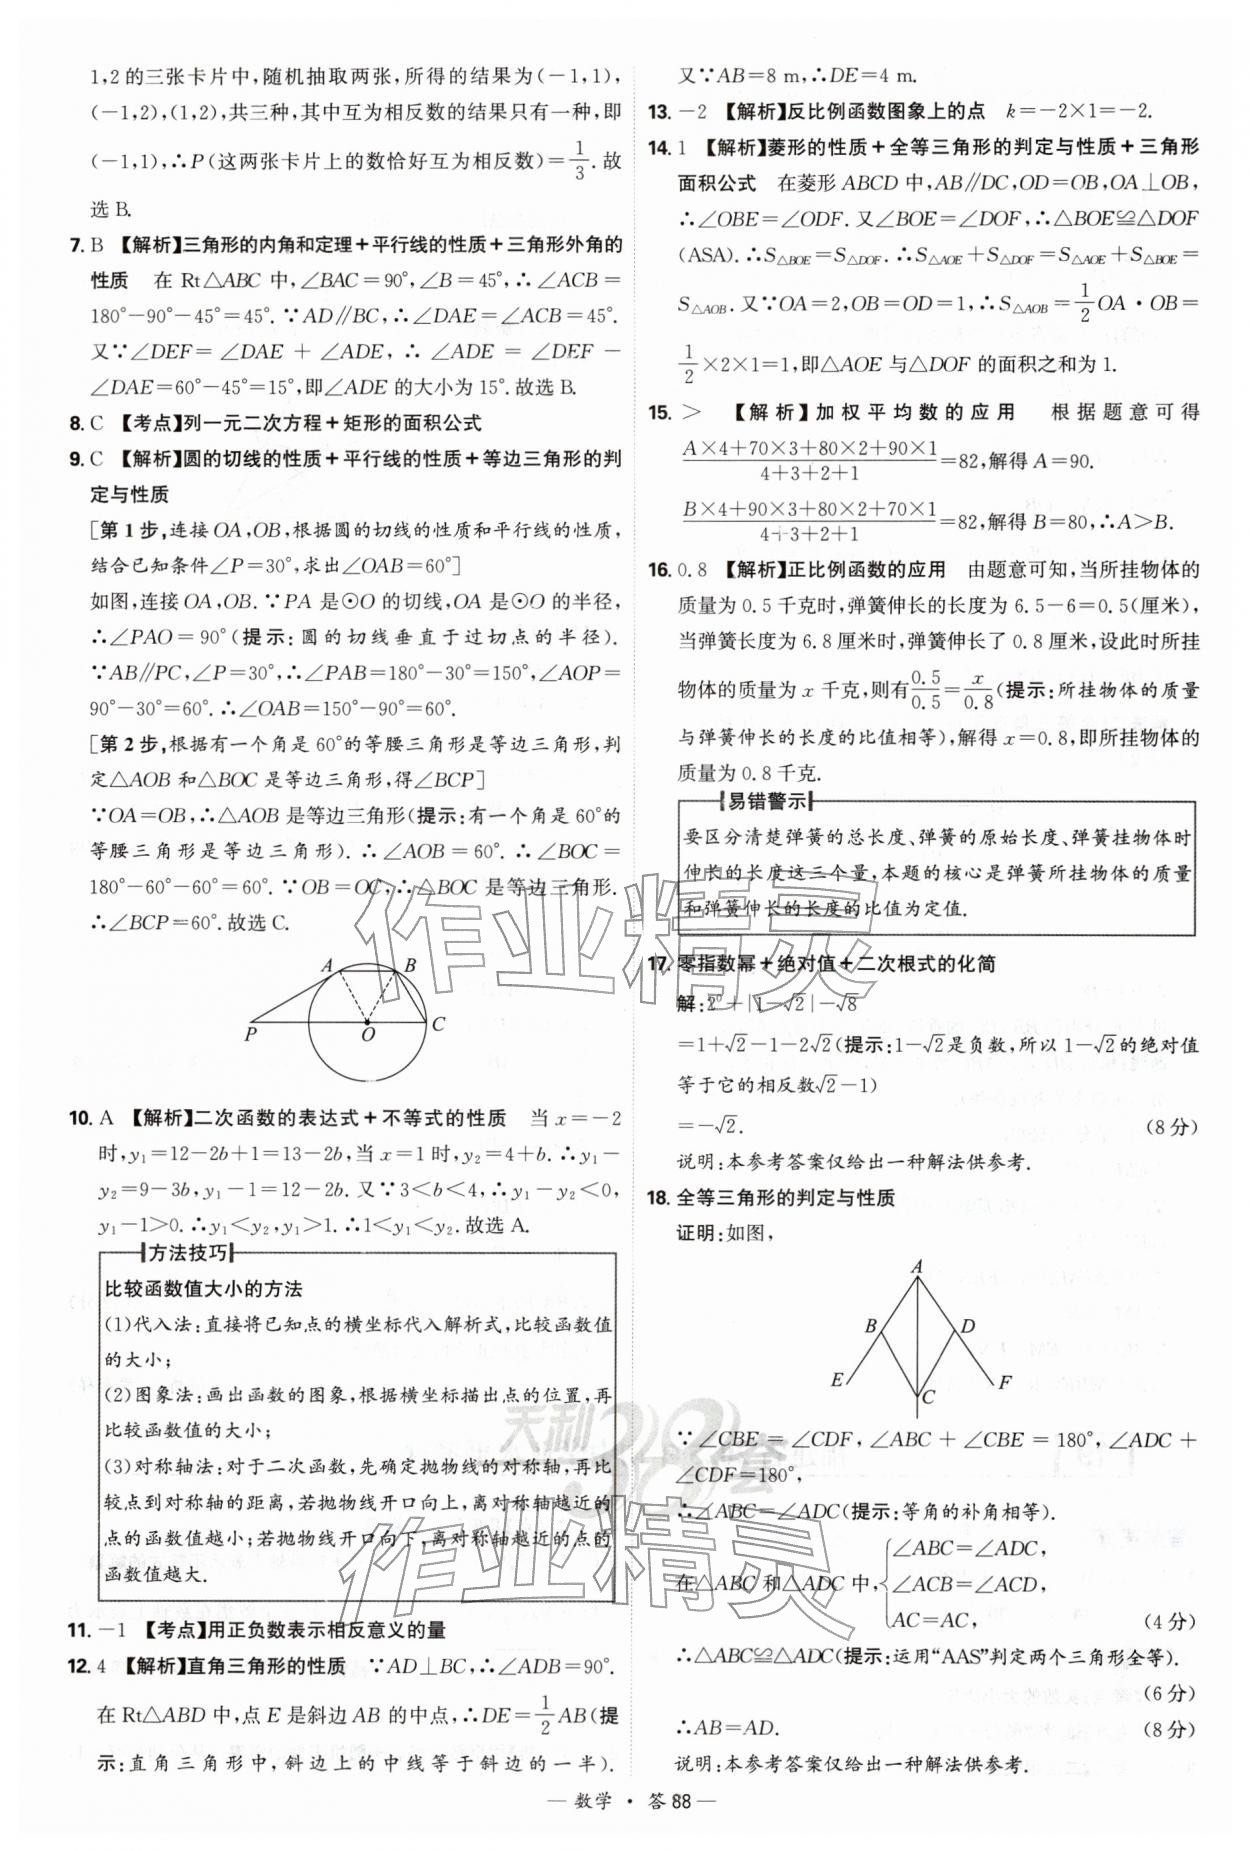 1,2的三张卡片中,随机抽取两张,所得的结果为(-1,1),
(-1,2),(1,2),共三种,其中互为相反数的结果只有一种,即
(-1,1),∴P(这两张卡片上的数恰好互为相反数)=1/3.故
选B.
7. B 【解析】三角形的内角和定理+平行线的性质+三角形外角的
性质 在Rt△ABC中,∠BAC=90°,∠B=45°,∴∠ACB=
180°-90°-45°=45°.∵AD∥BC,∴∠DAE=∠ACB=45°.
又∵∠DEF=∠DAE+∠ADE,∴∠ADE=∠DEF-
∠DAE=60°-45°=15°,即∠ADE的大小为15°.故选B.
8. C 【考点】列一元二次方程+矩形的面积公式
9. C 【解析】圆的切线的性质+平行线的性质+等边三角形的判
定与性质
[第1步,连接OA,OB,根据圆的切线的性质和平行线的性质,
结合已知条件∠P=30°,求出∠OAB=60°]
如图,连接OA,OB.∵PA是⊙O的切线,OA是⊙O的半径,
∴∠PAO=90°(提示:圆的切线垂直于过切点的半径).
∵AB∥PC,∠P=30°,∴∠PAB=180°-30°=150°,∠AOP=
90°-30°=60°.∴∠OAB=150°-90°=60°.
[第2步,根据有一个角是60°的等腰三角形是等边三角形,判
定△AOB和△BOC是等边三角形,得∠BCP]
∵OA=OB,∴△AOB是等边三角形(提示:有一个角是60°的
等腰三角形是等边三角形).∴∠AOB=60°.∴∠BOC=
180°-60°-60°=60°.∵OB=OC,∴△BOC是等边三角形.
∴∠BCP=60°.故选C.
A B
P O C
10. A 【解析】二次函数的表达式+不等式的性质 当x=-2
时,y₁=12-2b+1=13-2b,当x=1时,y₂=4+b.∴y₁-
y₂=9-3b,y₁-1=12-2b.又∵3<b<4,∴y₁-y₂<0,
y₁-1>0.∴y₁<y₂,y₁>1.∴1<y₁<y₂.故选A.
方法技巧
比较函数值大小的方法
(1)代入法:直接将已知点的横坐标代入解析式,比较函数值
的大小;
(2)图象法:画出函数的图象,根据横坐标描出点的位置,再
比较函数值的大小;
(3)对称轴法:对于二次函数,先确定抛物线的对称轴,再比
较点到对称轴的距离,若抛物线开口向上,离对称轴越近的
点的函数值越小;若抛物线开口向下,离对称轴越近的点的
函数值越大.
11. -1 【考点】用正负数表示相反意义的量
12. 4 【解析】直角三角形的性质 ∵AD⊥BC,∴∠ADB=90°.
在Rt△ABD中,点E是斜边AB的中点,∴DE=1/2AB(提
示:直角三角形中,斜边上的中线等于斜边的一半).
又∵AB=8 m,∴DE=4 m.
13. -2 【解析】反比例函数图象上的点 k=-2×1=-2.
14. 1 【解析】菱形的性质+全等三角形的判定与性质+三角形
面积公式 在菱形ABCD中,AB∥DC,OD=OB,OA⊥OB,
∴∠OBE=∠ODF.又∠BOE=∠DOF,∴△BOE≌△DOF
(ASA).∴S△BOE=S△DOF.∴S△AOE+S△DOF=S△AOE+S△BOE=
S△AOB.又∵OA=2,OB=OD=1,∴S△AOB=1/2OA·OB=
1/2×2×1=1,即△AOE与△DOF的面积之和为1.
15. > 【解析】加权平均数的应用 根据题意可得
(A×4+70×3+80×2+90×1)/(4+3+2+1)=82,解得A=90.
(B×4+90×3+80×2+70×1)/(4+3+2+1)=82,解得B=80,∴A>B.
16. 0.8 【解析】正比例函数的应用 由题意可知,当所挂物体的
质量为0.5千克时,弹簧伸长的长度为6.5-6=0.5(厘米),
当弹簧长度为6.8厘米时,弹簧伸长了0.8厘米,设此时所挂
物体的质量为x千克,则有0.5/0.5=x/0.8(提示:所挂物体的质量
与弹簧伸长的长度的比值相等),解得x=0.8,即所挂物体的
质量为0.8千克.
易错警示
要区分清楚弹簧的总长度、弹簧的原始长度、弹簧挂物体时
伸长的长度这三个量,本题的核心是弹簧所挂物体的质量
和弹簧伸长的长度的比值为定值.
17. 零指数幂+绝对值+二次根式的化简
解:2⁰+|1-√2|-√8
=1+√2-1-2√2(提示:1-√2是负数,所以1-√2的绝对值
等于它的相反数√2-1)
=-√2. (8分)
说明:本参考答案仅给出一种解法供参考.
18. 全等三角形的判定与性质
证明:如图,
A
B D
E F
C
∵∠CBE=∠CDF,∠ABC+∠CBE=180°,∠ADC+
∠CDF=180°,
∴∠ABC=∠ADC(提示:等角的补角相等).
在△ABC和△ADC中,{∠ABC=∠ADC,
∠ACB=∠ACD,
AC=AC, (4分)
∴△ABC≌△ADC(提示:运用“AAS”判定两个三角形全等).
(6分)
∴AB=AD. (8分)
说明:本参考答案仅给出一种解法供参考.
— 数学 · 答88 —
作业精灵
天利38套
作业精灵